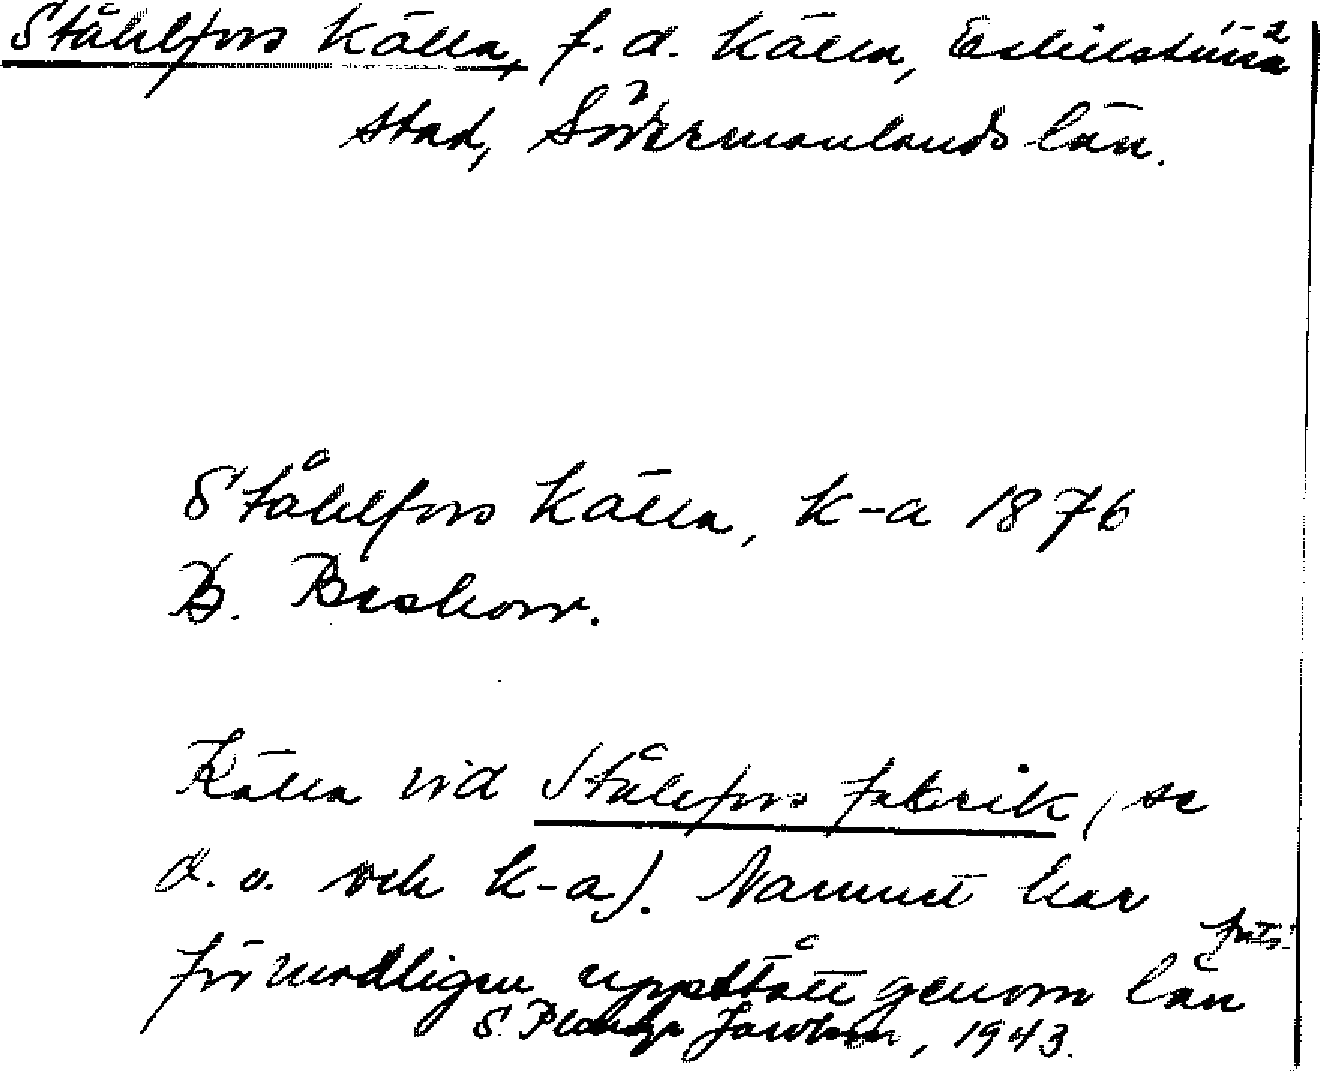 Ståhlfors Källa, f. d. källa, Eskilstuna
stad, Södermanlands län.
Ståhlfors Källa, k-a 1876
B. Beskow.
Källa vid Stålfors fabrik (se
d. o. och k-a). Namnet har
förmodligen uppstått genom lån
forts.
S. Jacobson, 1943.